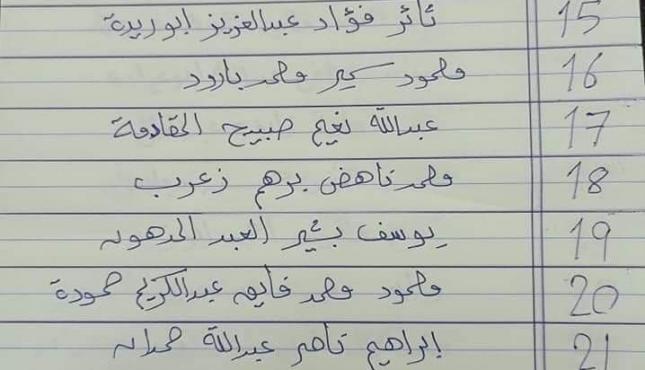 15 ثائر فؤاد عبدالعزيز ابو ريدة
16 محمود سمير محمد بارود
17 عبدالله نعيم صبيح المقادمة
18 محمد ناهض برهم زعرب
19 يوسف بشير العبد المدهون
20 محمود محمد فايق عبدالكريم حمودة
21 ابراهيم ناصر عبدالله حمدان